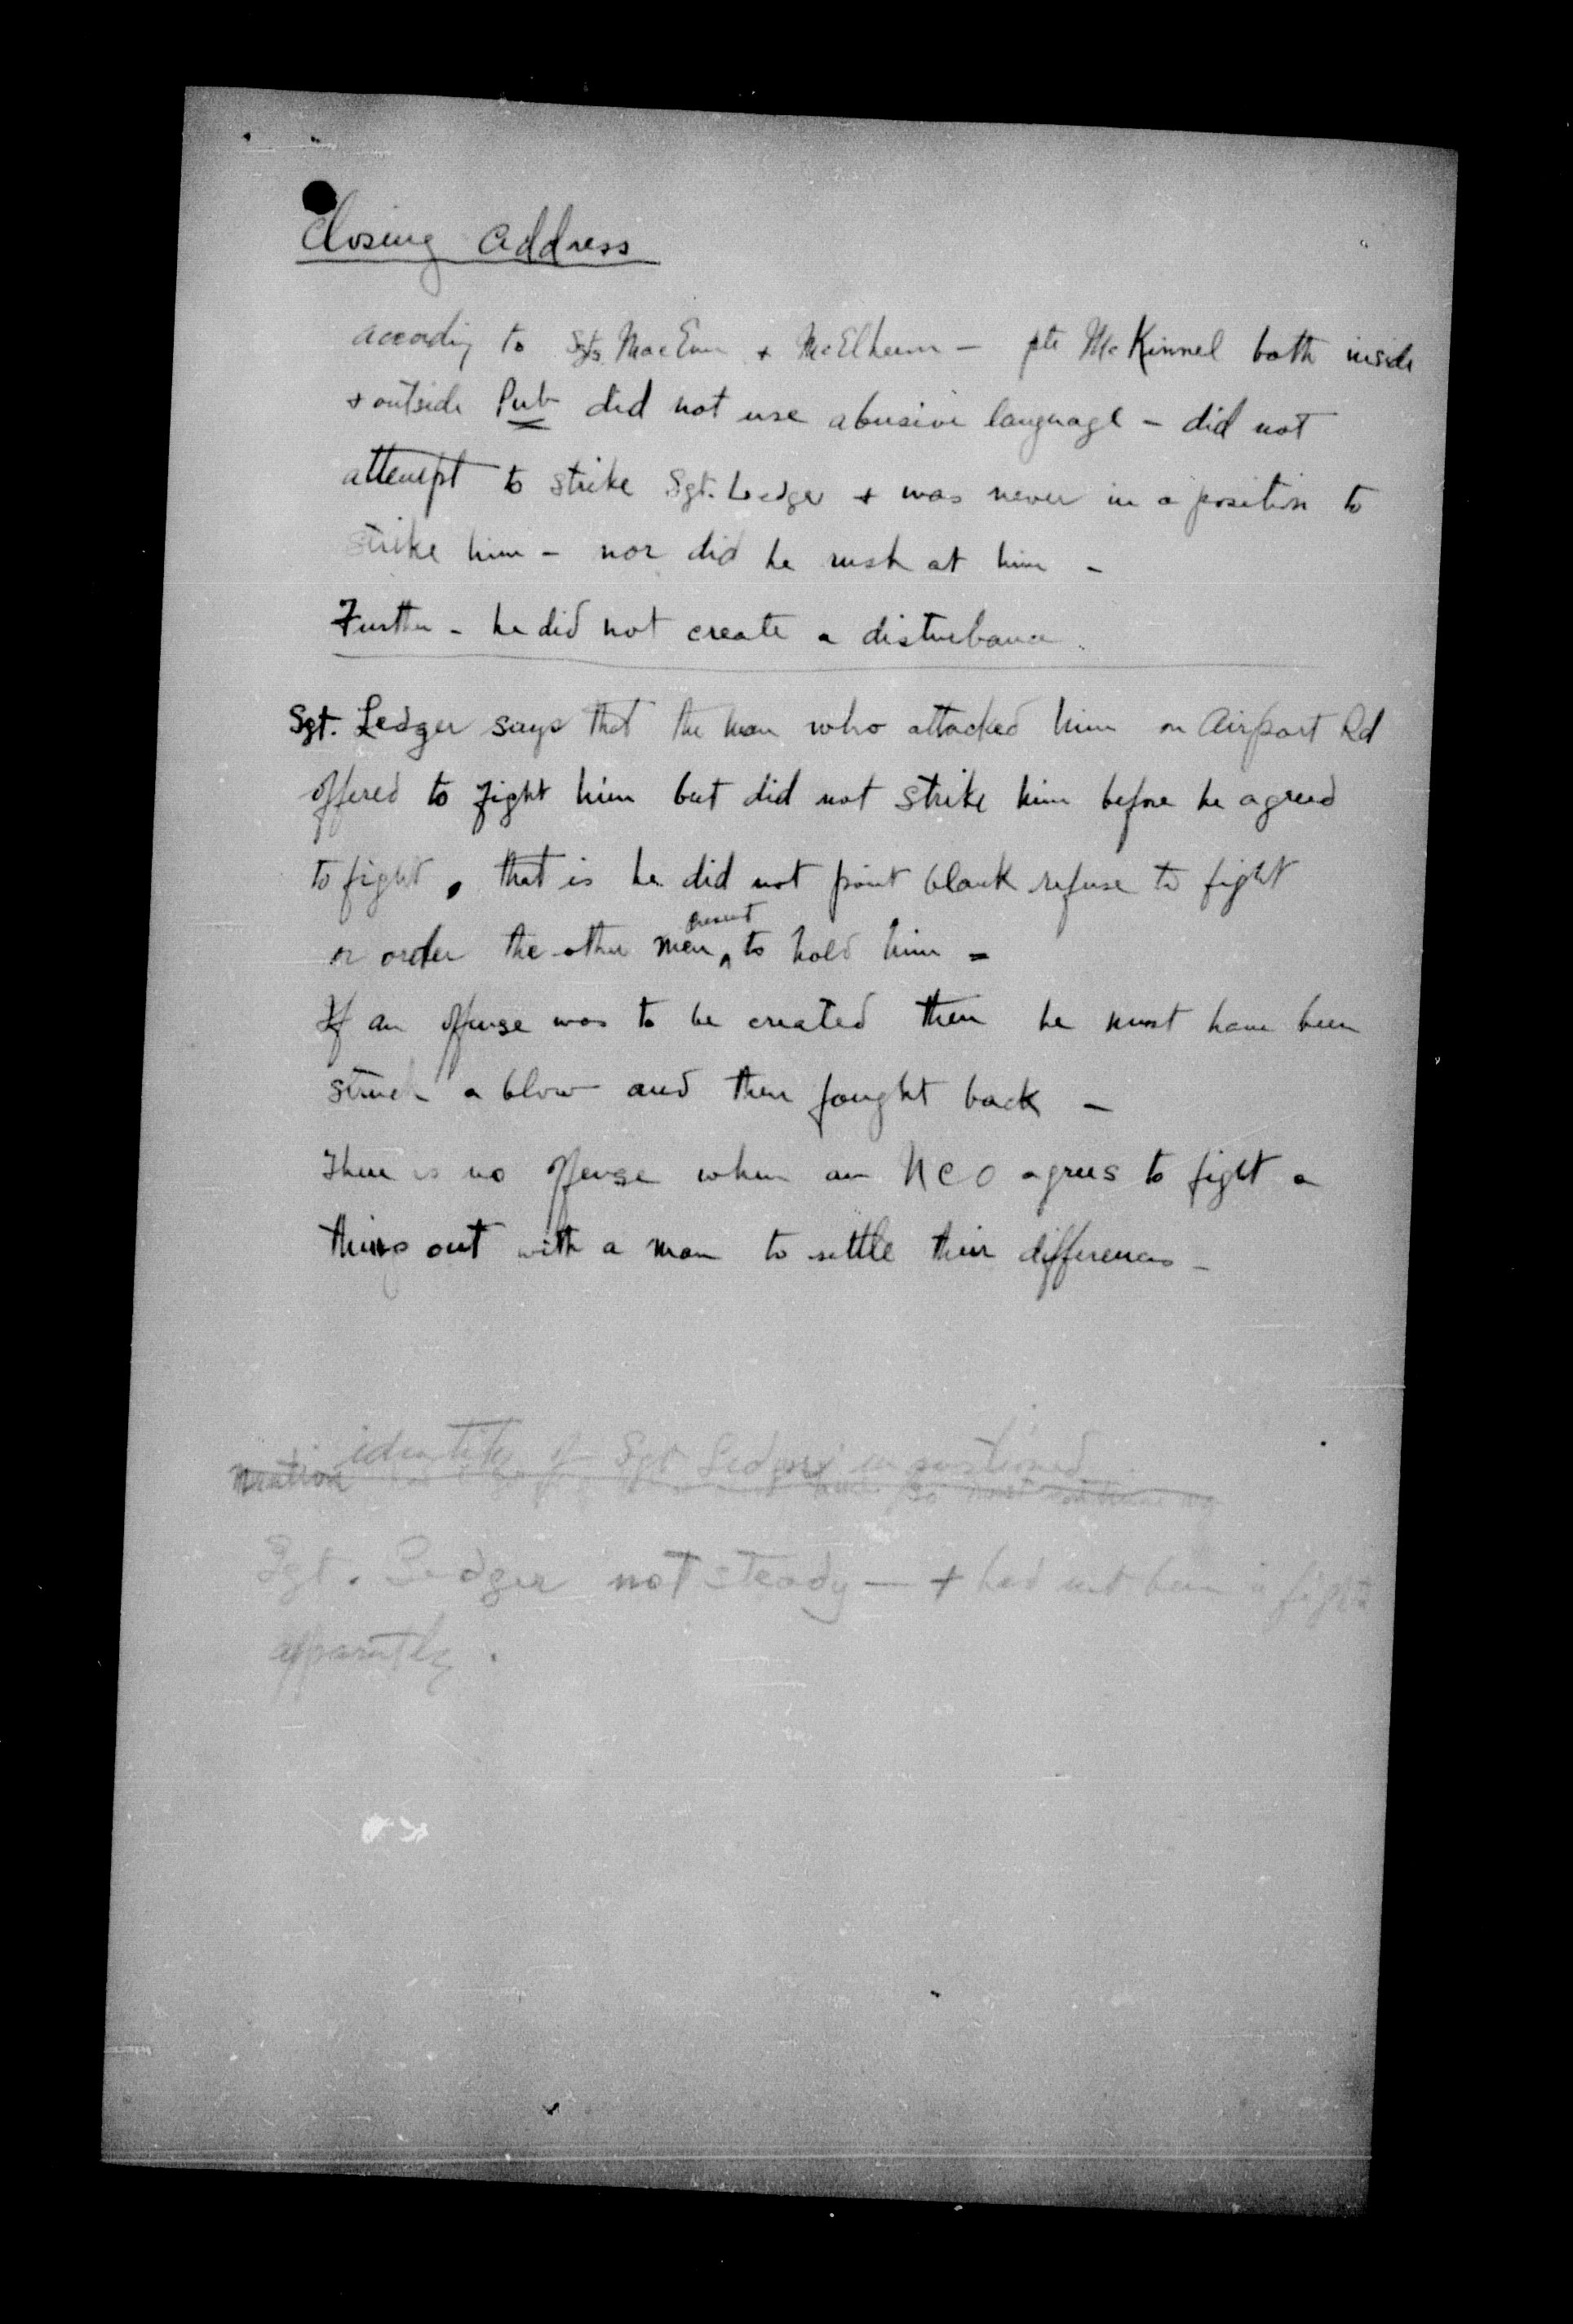 Closing Address
Accordig to Sgts MacEwn + McElhern – pte McKinnel both inside
+ outside Pub did not use abusive language – did not
attempt to strike Sgt. Ledger + was never in a position to
strike him – nor did he rush at him –
Further – he did not create a disturbance.
Sgt. Ledger says that the man who attacked him on Airport Rd
offered to fight him but did not strike him before he agreed
to fight, that is he did not point blank refuse to fight
or order the other men present to hold him =
If an offense was to be created then he must have been
struck a blow and then fought back –
There is no offense when an NCO agrees to fight a
things out with a man to settle their differences –
identity of Sgt Ledger
Mention
Sgt. Ledger not steady – + had not been in fight
apparently.